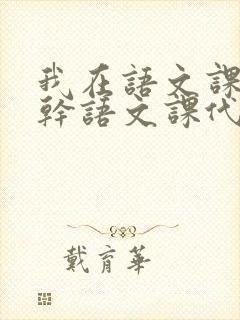 我在語文課
幹語文課代
戴育華